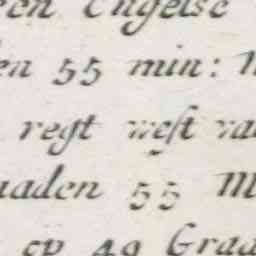 een Engelse
en 55 min: N
regt west va
aaden 55 M
op 49 Graa